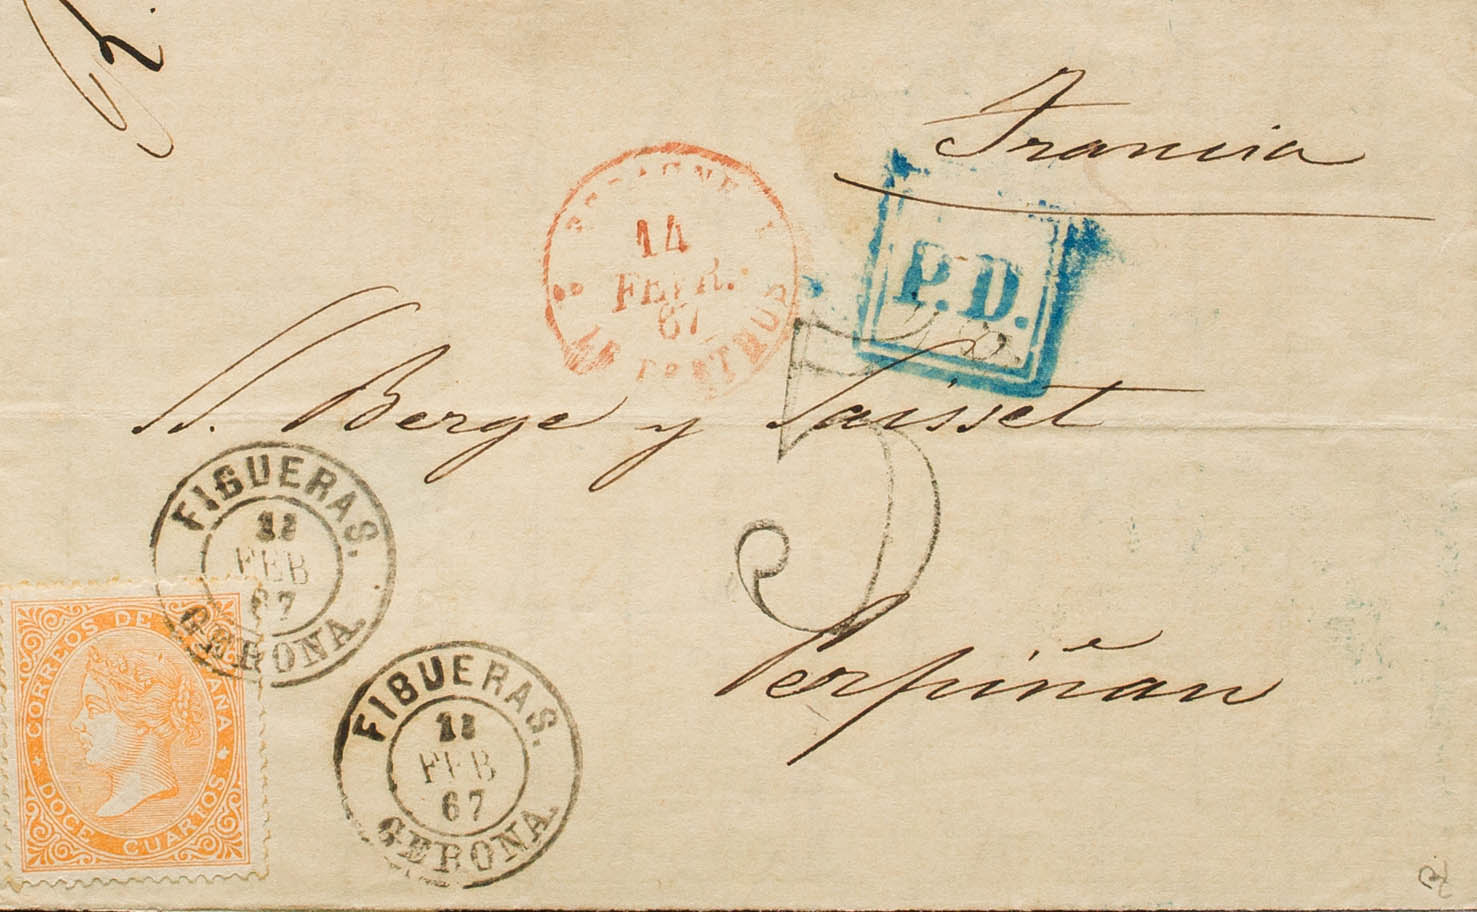 Francia
ESPAGNE
14
FEVR.
67
LE PERTHUS
P.D.
S. Berge y Saisset
5
FIGUERAS.
FEB
67
GERONA.
Perpiñan
CORREOS DE ESPAÑA
DOCE CUARTOS
FIGUERAS.
FEB
67
GERONA.